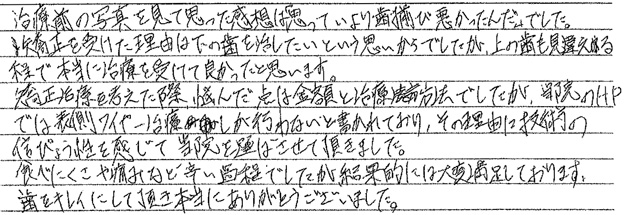 治療前の写真を見て思った感想は思っていより歯並び悪かったんだなでした。
矯正を受けた理由は下の歯を治したいという思いからでしたが、上の歯も見違える
程で本当に治療を受けて良かったと思います。
矯正治療を考えた際、悩んだ点は金額と治療方法でしたが、当院のHP
では表側ワイヤー治療しか行わないと書かれており、その理由に技術の
信ぴょう性を感じて当院を選ばさせて頂きました。
食べにくさや痛みなど辛い過程でしたが結果的には大変満足しております。
歯をキレイにして頂き本当にありがとうございました。